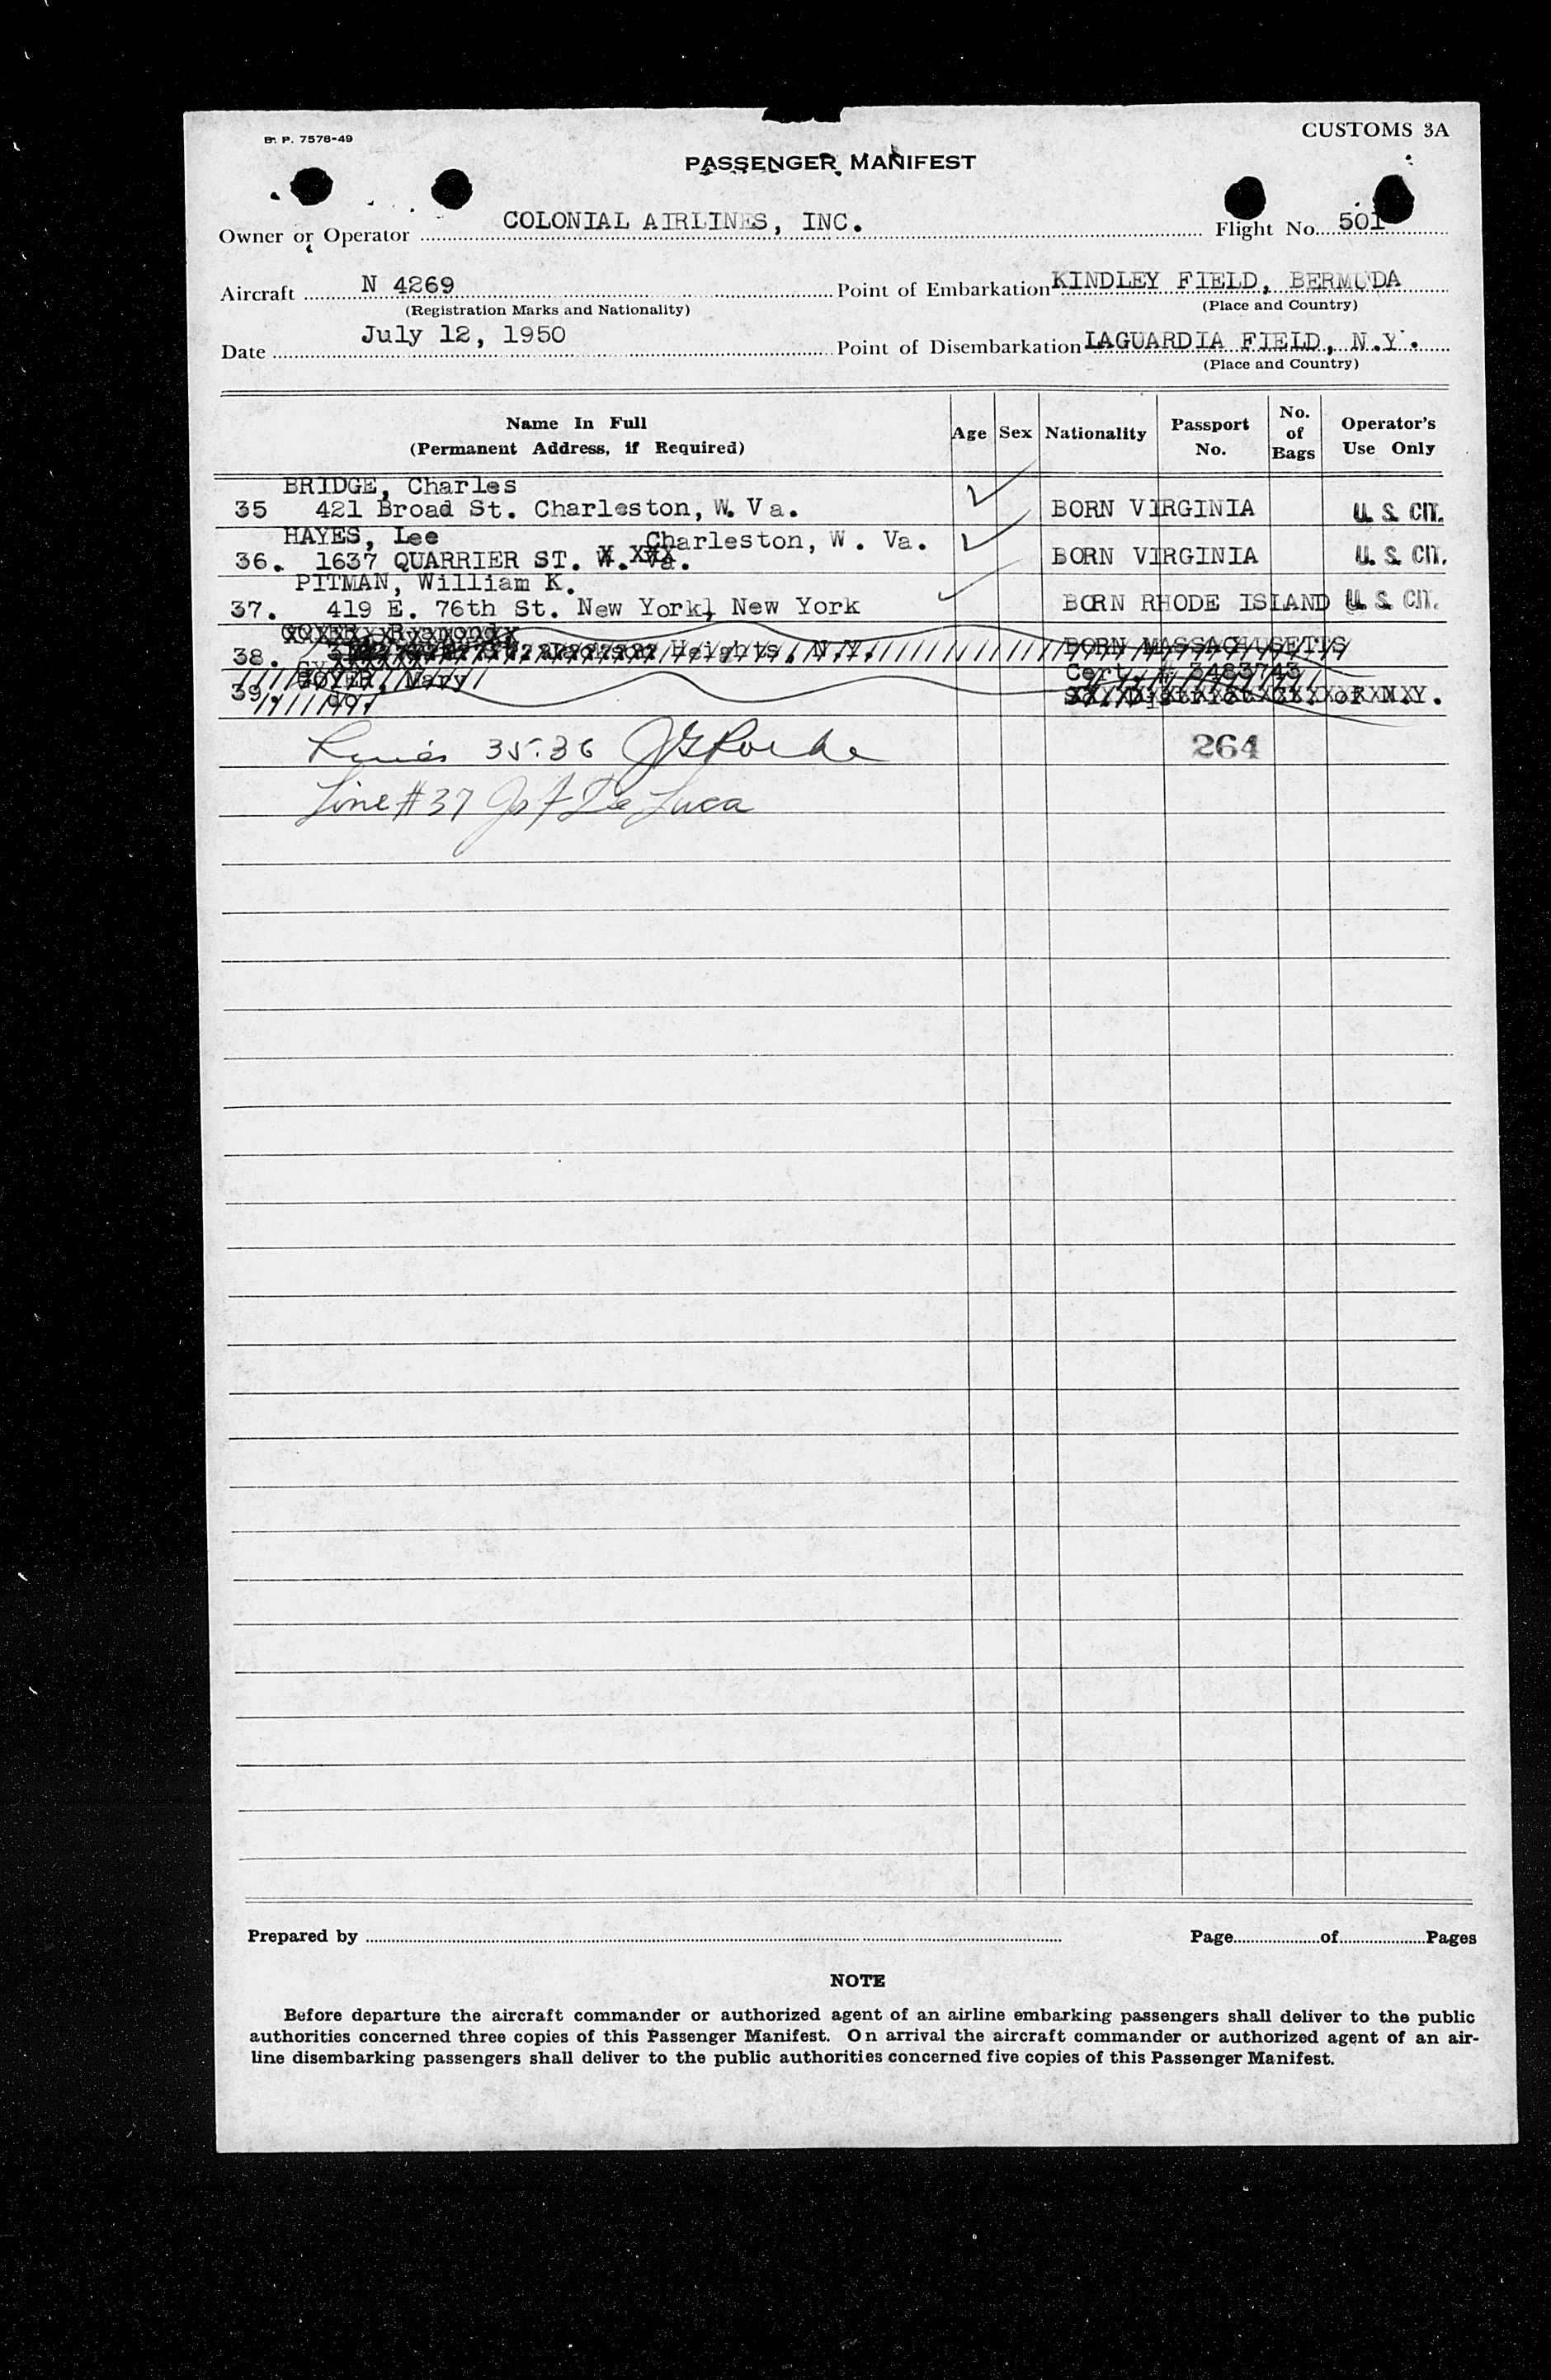 B. P. 7578-49
CUSTOMS 3A
PASSENGER MANIFEST
Owner or Operator COLONIAL AIRLINES, INC. Flight No. 501
Aircraft N 4269 Point of Embarkation KINDLEY FIELD, BERMUDA
(Registration Marks and Nationality) (Place and Country)
Date July 12, 1950 Point of Disembarkation LAGUARDIA FIELD, N.Y.
(Place and Country)
Name In Full
(Permanent Address, if Required)
Age Sex Nationality Passport No. No. of Bags Operator's Use Only
BRIDGE, Charles
35 421 Broad St. Charleston, W. Va. BORN VIRGINIA U. S. CIT.
HAYES, Lee Charleston, W. Va.
36. 1637 QUARRIER ST. W. Va. BORN VIRGINIA U. S. CIT.
PITMAN, William K.
37. 419 E. 76th St. New York, New York BORN RHODE ISLAND U. S. CIT.
38. Heights, N.Y. BORN MASSACHUSETTS
GOYER, Mary Cert. 3483743
39. do. So. District Ct. of N.Y.
35.36 264
Line #37 De Luca
Prepared by Page of Pages
NOTE
Before departure the aircraft commander or authorized agent of an airline embarking passengers shall deliver to the public
authorities concerned three copies of this Passenger Manifest. On arrival the aircraft commander or authorized agent of an air-
line disembarking passengers shall deliver to the public authorities concerned five copies of this Passenger Manifest.